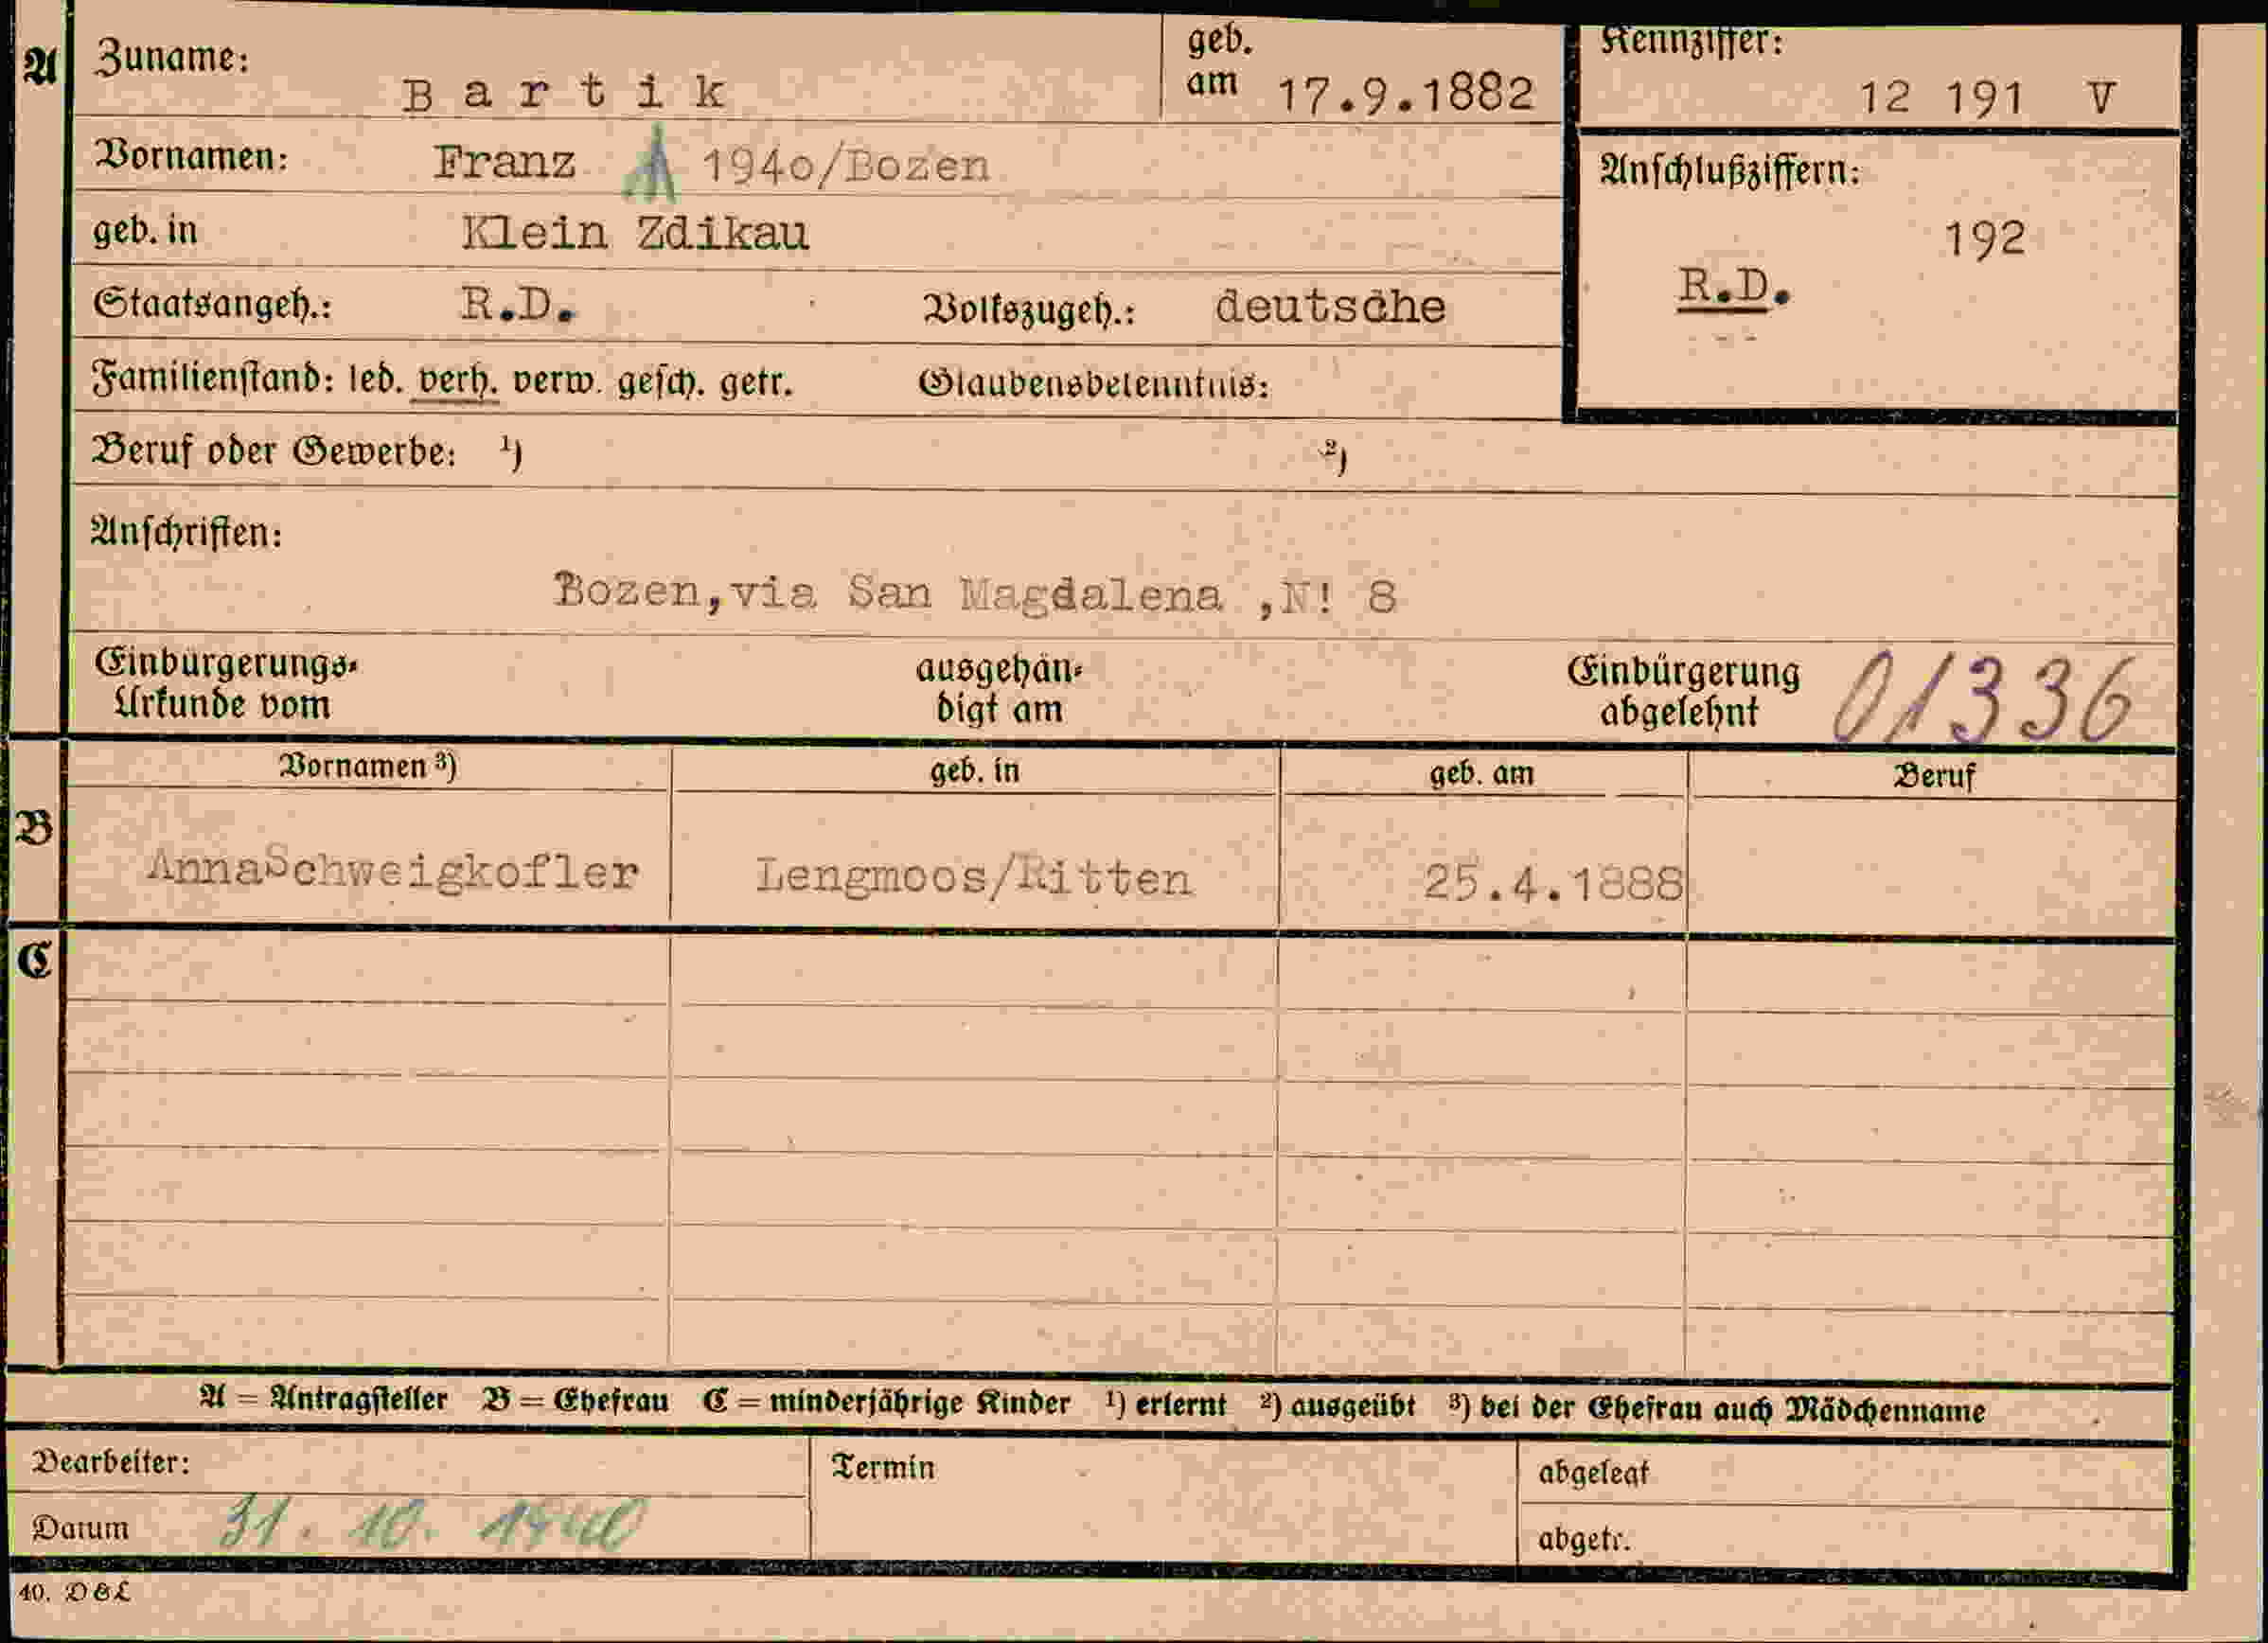 A Zuname: B a r t i k geb. am 17.9.1882 Kennziffer: 12 191 V
Vornamen: Franz A 1940/Bozen Anschlußziffern:
geb. in Klein Zdikau 192
Staatsangeh.: R.D. Volkszugeh.: deutsche R.D.
Familienstand: led. verh. verw. gesch. getr. Glaubensbekenntnis:
Beruf oder Gewerbe: ¹) ²)
Anschriften:
Bozen,via San Magdalena ,N! 8
Einbürgerungs- ausgehän- Einbürgerung 01336
Urkunde vom digt am abgelehnt
Vornamen ³) geb. in geb. am Beruf
B AnnaSchweigkofler Lengmoos/Ritten 25.4.1888
C
A = Antragsteller B = Ehefrau C = minderjährige Kinder ¹) erlernt ²) ausgeübt ³) bei der Ehefrau auch Mädchenname
Bearbeiter: Termin abgelegt
Datum 31. 10. 1940 abgetr.
40. D&L